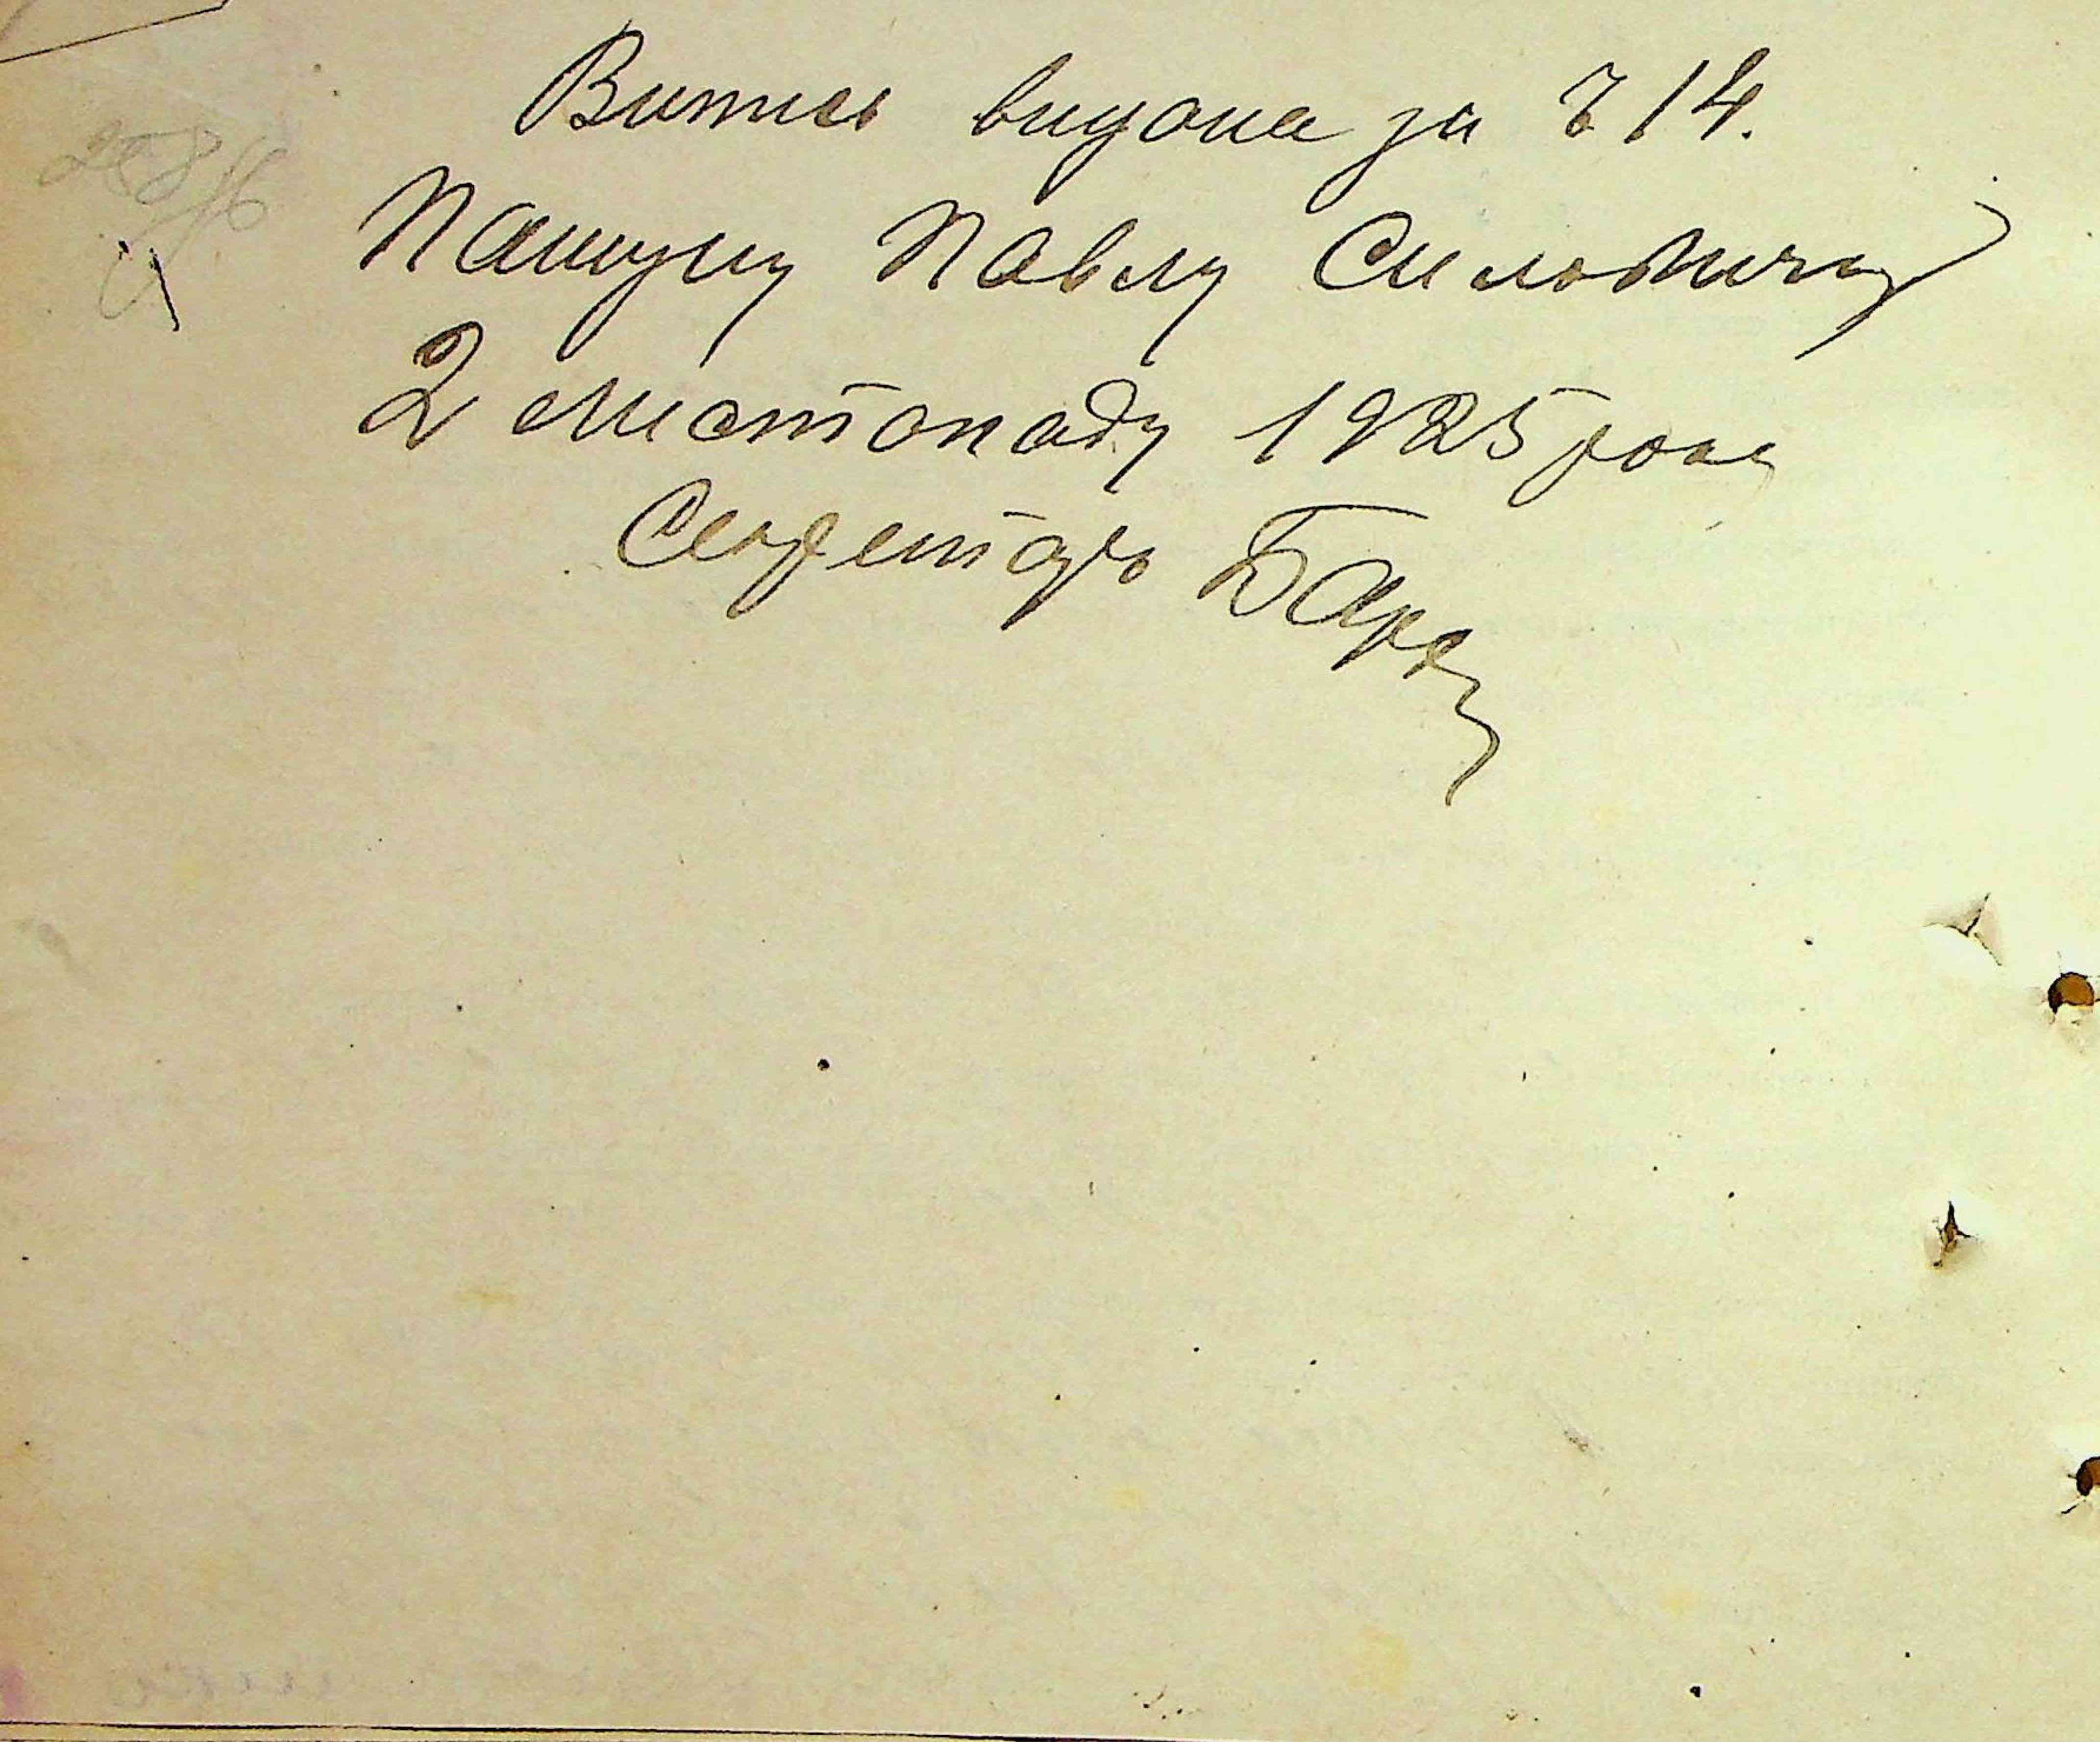 Витис видана за Ч 14.
Павлу Силовичу
2 Листопаду 1925 року
Секретарь